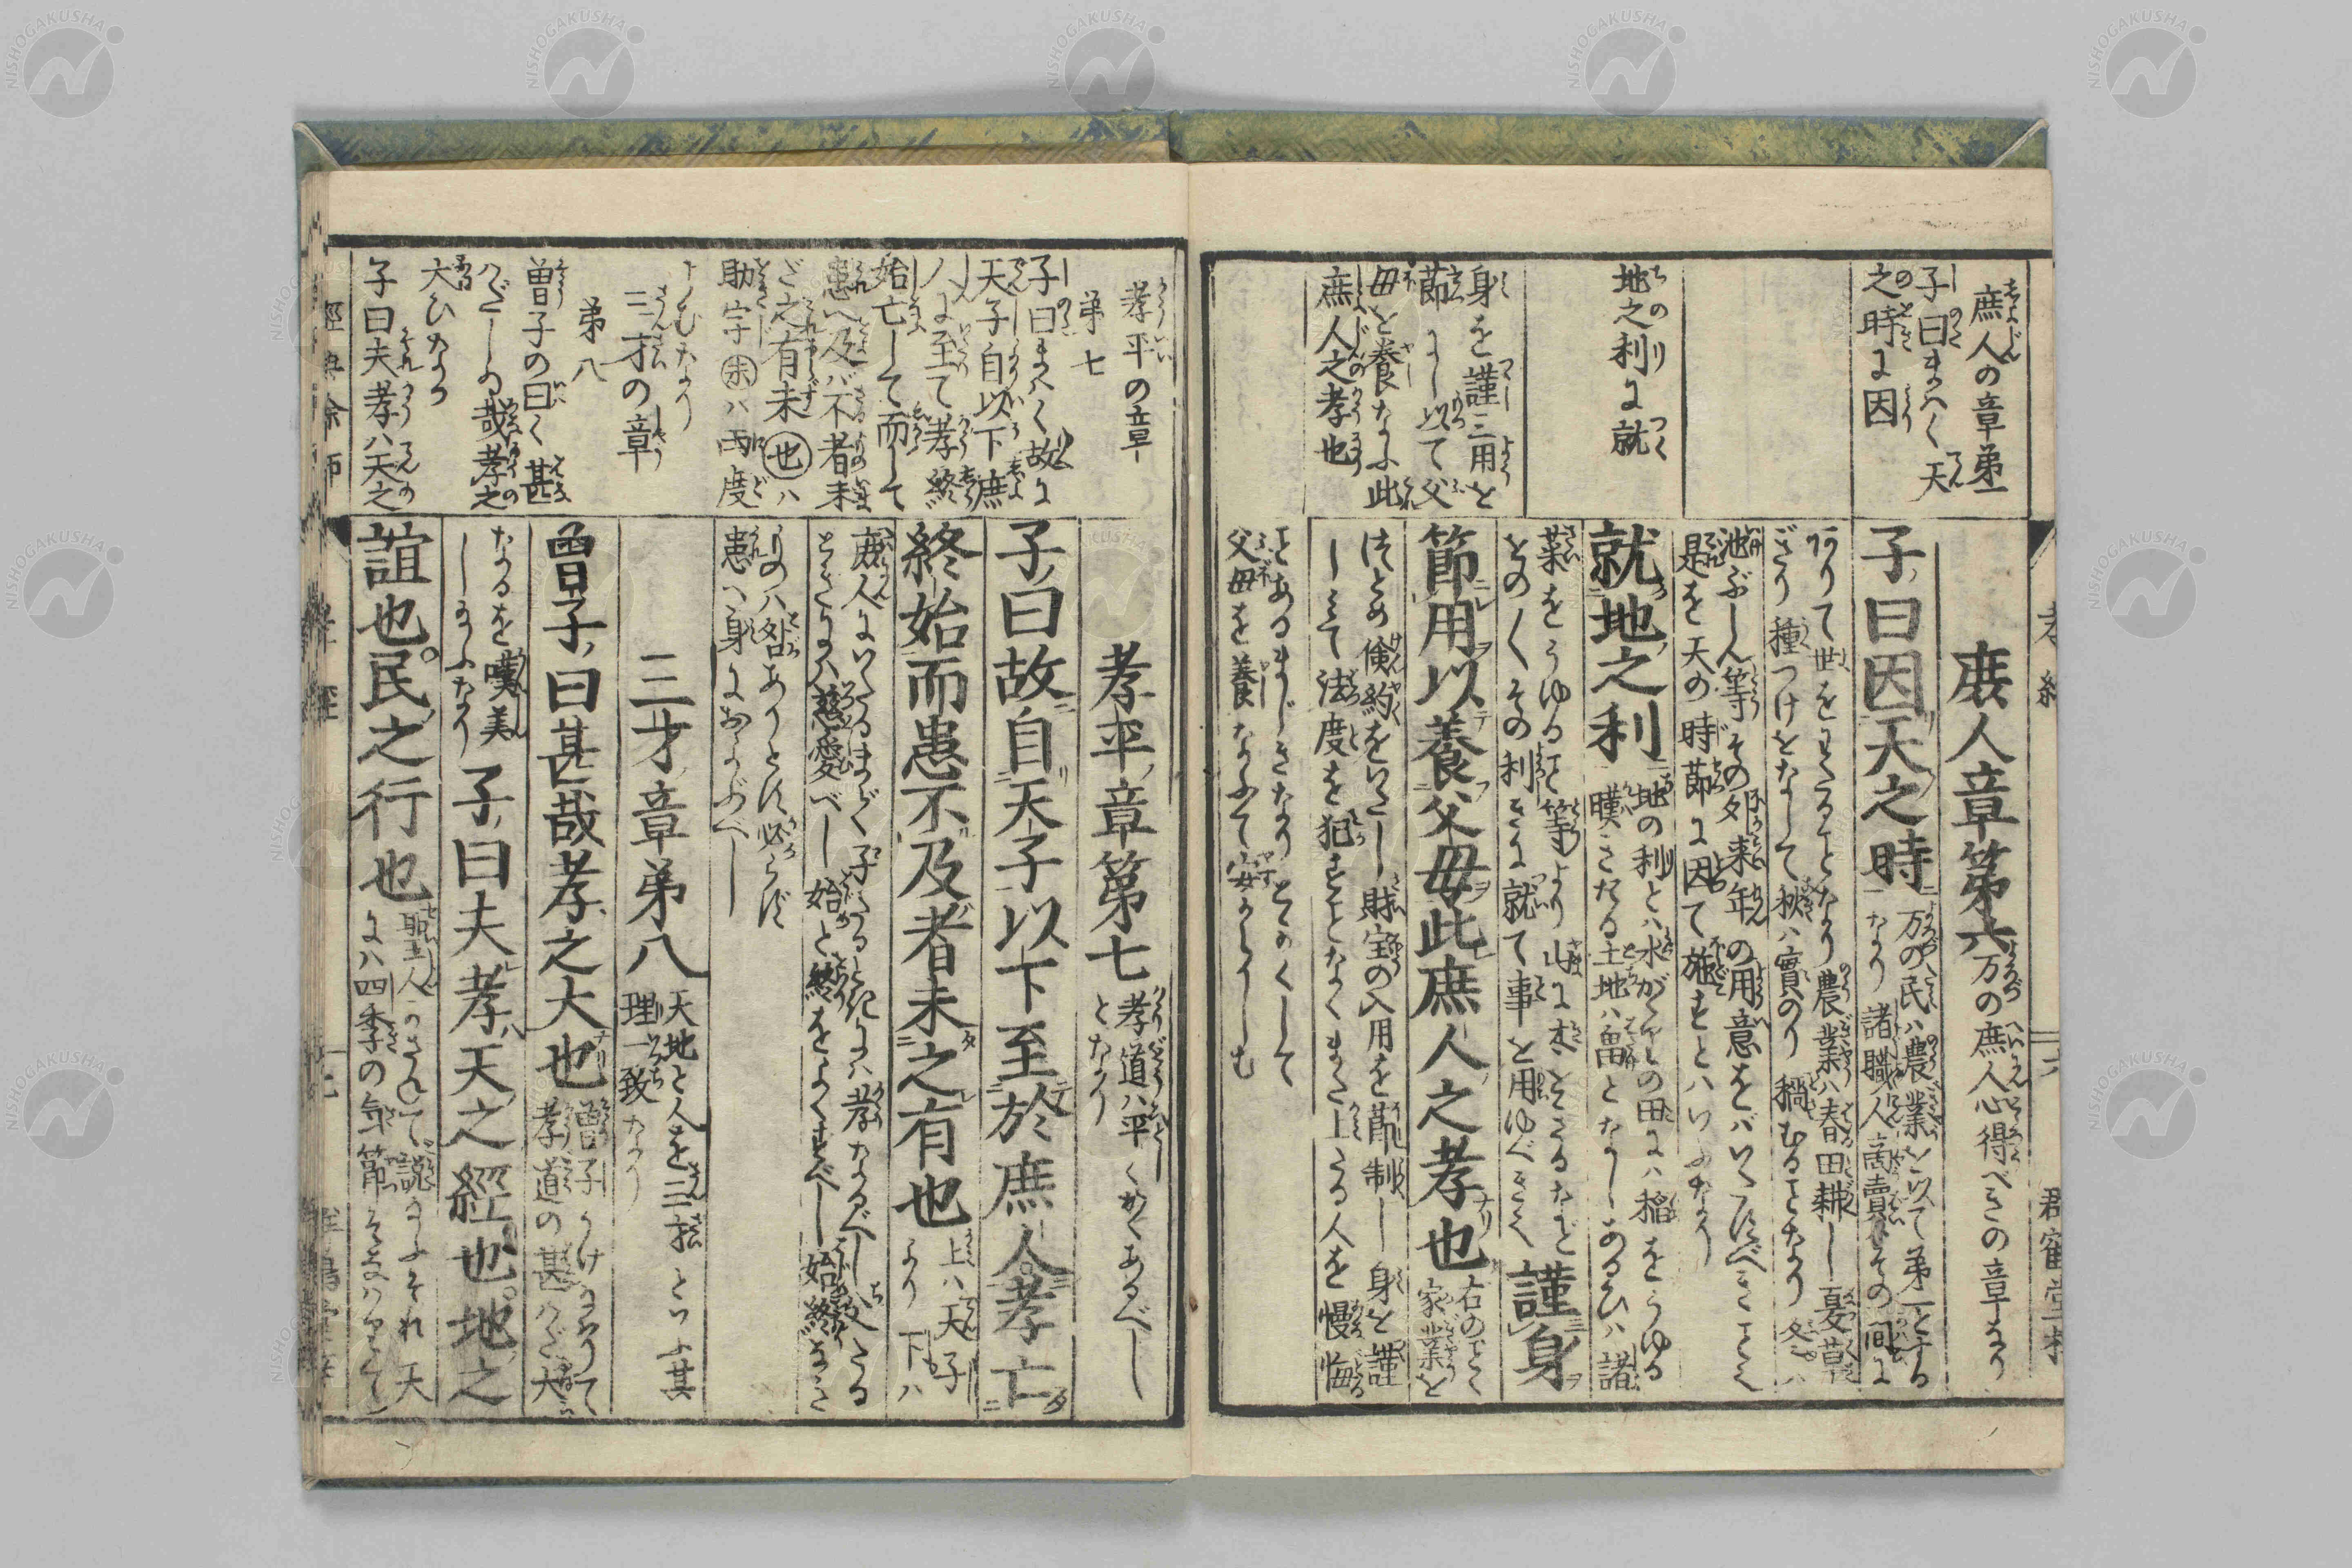 庶人の章第
子曰まハく天
之時に因
地之利に就
身を謹ミ用を
節にし以て父
母を養なふ此
庶人之孝也
庶人章第六
万の庶人心得べきの章なり
子曰因天之時
万の民ハ農業を以て第一とする
なり諸職人商賣人その間に
ありて世をわたることなり農業ハ春田耕し夏草
ぎり種つけをなして秋ハ實のり穐むることなり冬ハ
池ぶしん等その外来年の用意をバいたすべきことこ
是を天の時節に因て施すとハいふなり
就地之利
地の利とハ水がゝりの田にハ稲をうゆる
土地ハ畠となしあるひハ諸
菜をうゆること等より山に木をきるなど
その利きに就て事を用ゆべきこ
謹身
節用以養父母此庶人之孝也
右のごとく
家業を
つとめ倹約をいたし財宝の入用を節制し身を謹
しミて法度を犯すことなくまた上たる人を慢侮
ことあるまじきなりとかくして
父母を養なふて安からしむ
孝平の章
第七
子曰まハく故に
天子自以下庶
人に至て孝終
始亡して而して
患へ及バ不者未
ざ之有未㊀也ハ
助字未ハ両度
よむなり
三才の章
第八
曾子の曰く甚
ハだしゐ哉孝之
大ひなる
子曰夫孝ハ天之
孝平章第七
孝道ハ平くかくあるべし
となり
子曰故自天子以下至於庶人孝亡
終始而患不及者未之有也
上ハ天子
より下ハ
庶人にいたるまで子たるときにハ孝なるべし父たる
ときにハ慈愛べし始と終をよくすべし始終なき
ものハ外ありとも必らず
患へ身におよぶべし
三才章第八
天地と人を三才といふ其
理一致なり
曾子曰甚哉孝之大也
曾子うけ玉ハりて
孝道の甚ハだ大
なるを嘆美
し玉ふなり
子曰夫孝天之經也地之
誼也民之行也
聖人かさねて説玉ふそれ天
にハ四季の気節
孝經
君寉堂梓